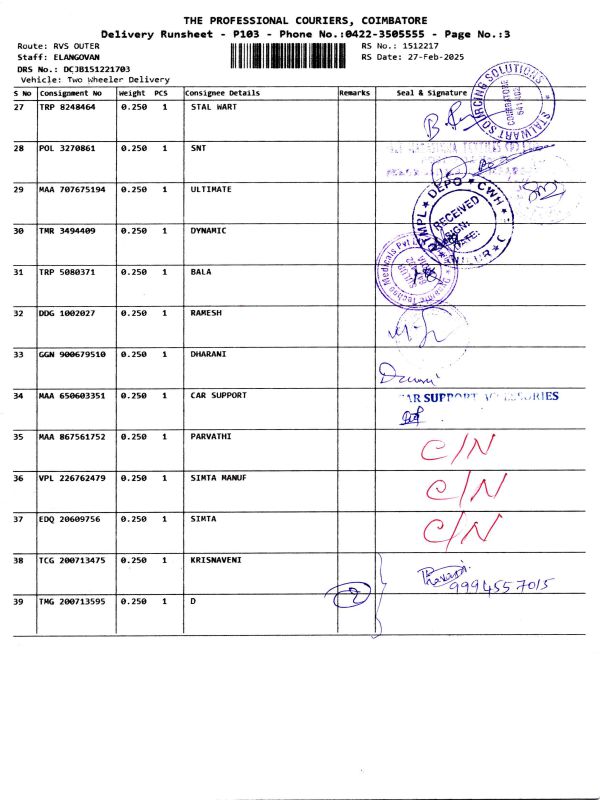 THE PROFESSIONAL COURIERS, COIMBATORE
Delivery Runsheet - P103 - Phone No.:0422-3505555 - Page No.:3
Route: RVS OUTER RS No.: 1512217
Staff: ELANGOVAN RS Date: 27-Feb-2025
DRS No.: DCJB151221703
Vehicle: Two Wheeler Delivery
S No Consignment No Weight PCS Consignee Details Remarks Seal & Signature
27 TRP 8248464 0.250 1 STAL WART
STALWART SOURCING SOLUTIONS
COIMBATORE
641 402
28 POL 3270861 0.250 1 SNT
29 MAA 707675194 0.250 1 ULTIMATE
DEPO ★ CWH
RECEIVED
SIGN:
DATE:
30 TMR 3494409 0.250 1 DYNAMIC
31 TRP 5080371 0.250 1 BALA
32 DDG 1002027 0.250 1 RAMESH
33 GGN 900679510 0.250 1 DHARANI
34 MAA 650603351 0.250 1 CAR SUPPORT
CAR SUPPORT ACCESSORIES
35 MAA 867561752 0.250 1 PARVATHI C/N
36 VPL 226762479 0.250 1 SIMTA MANUF C/N
37 EDQ 20609756 0.250 1 SIMTA C/N
38 TCG 200713475 0.250 1 KRISNAVENI
9994557015
2
39 TMG 200713595 0.250 1 D